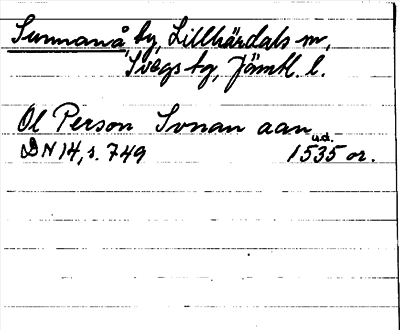 Sunnanå, by, Lillhärdals sn,
Svegs tg, Jämtl. l.
Ol Person Svnan aan
u.d.
DN 14, s. 749 1535 or.